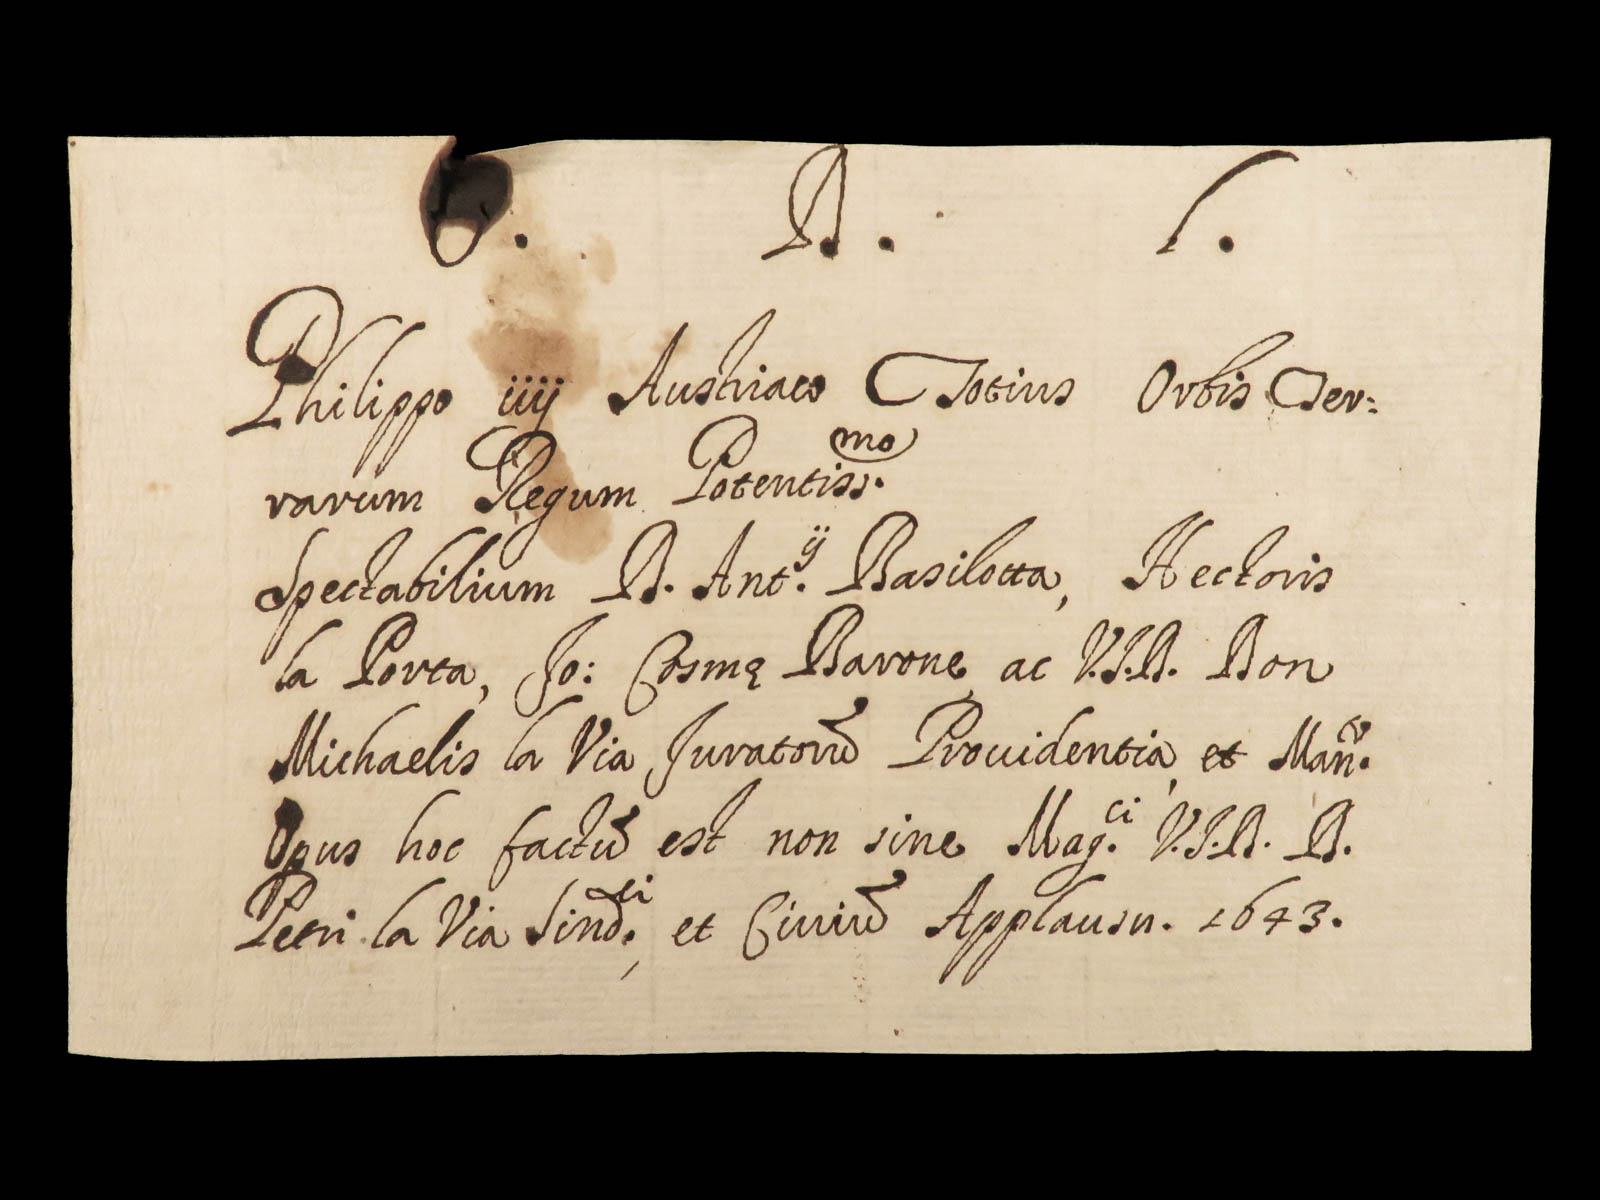 D. .
Philippo iiij Austriaco Totius Orbis Ter:
rarum Regum Potentiss.mo
Spectabilium D. Ant.ij Basilotta, Hectoris
la Porta, Jo: Cosmę Barone, ac V.J.D. Don
Michaelis la Via Juratorū Prouidentia, et Man.
Opus hoc factū est non sine Mag.ci V.J.D. D.
Petri la Via Sind.ci, et Ciuiū Applausu. 1643.